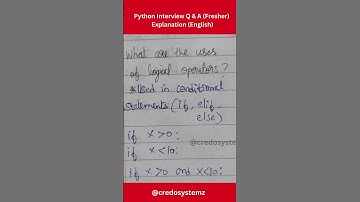 Python Interview Q & A (Fresher)
Explanation (English)
What are the uses
of logical operators?
* Used in conditional
statements (if, elif,
else)
if x>0:
@credosystemz
if x<10:
if x>0 and x<10:
@credosystemz